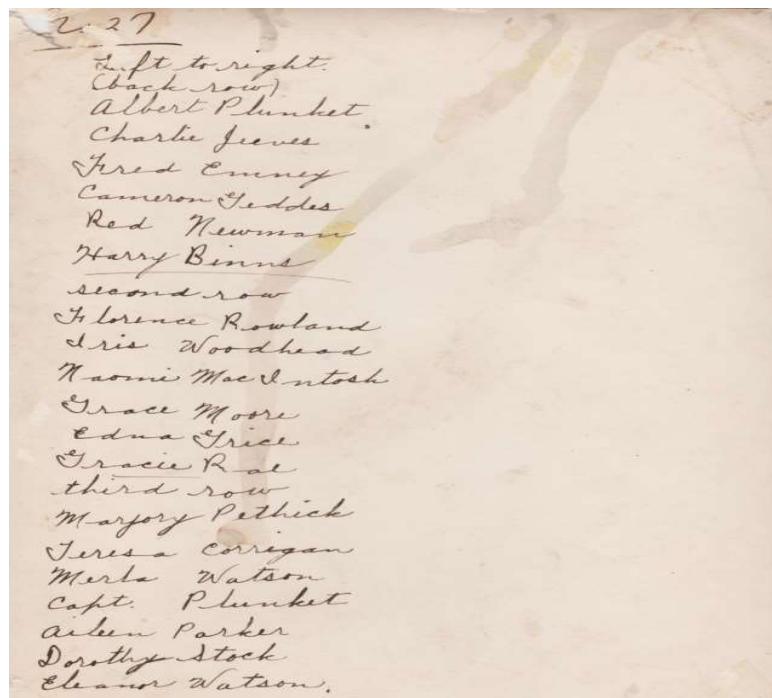 2. 27
Left to right.
(back row)
Albert Plunket
Charlie Jeeves
Fred Emney
Cameron Geddes
Red Newman
Harry Binns
second row
Florence Rowland
Iris Woodhead
Naomi MacIntosh
Grace Moore
Edna Grice
Gracie Rae
third row
Marjory Pethick
Teresa Corrigan
Merla Watson
Capt. Plunket
Aileen Parker
Dorothy Stock
Eleanor Watson.